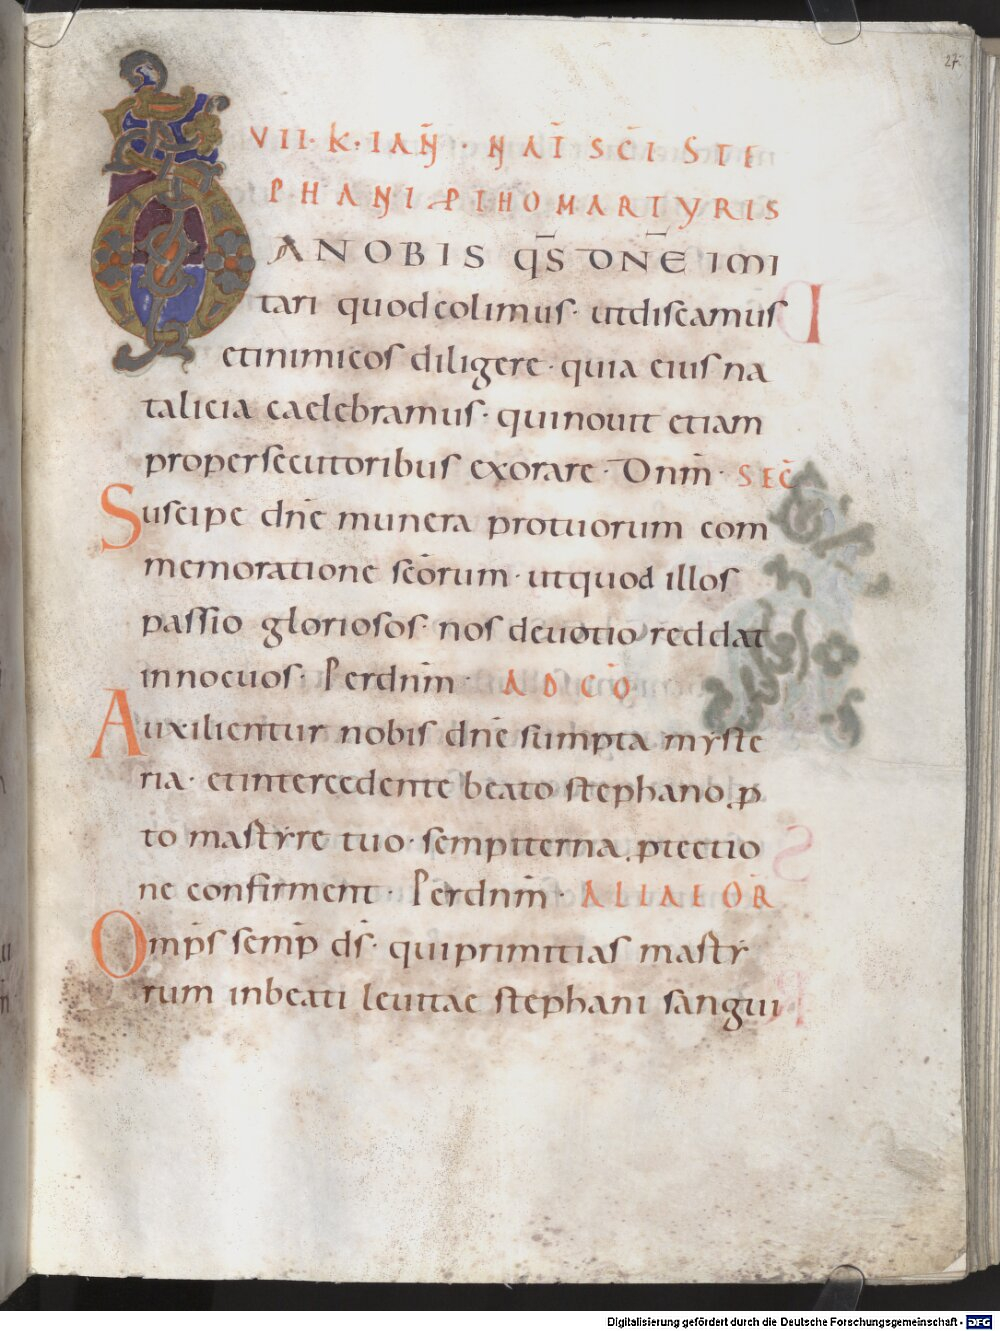 27
VII · K · IAN̄ · NAT̄ SC̄I STE
PHANI P̱THOMARTYRIS
DA NOBIS q̄s DN̄E IMI
tari quod colimus · ut discamus
et inimicos diligere · quia eius na
talicia caelebramus · qui nouit etiam
pro persecutoribus exorare · Dn̄m · SEC̄
Suscipe dn̄e munera pro tuorum com
memoratione sc̄orum · ut quod illos
passio gloriosos · nos deuotio reddat
innocuos · Per dn̄m · AD CŌ
Auxilientur nobis dn̄e sumpta myste
ria · et intercedente beato stephano p̱
to martyre tuo · sempiterna ꝓtectio
ne confirment · Per dn̄m · ALIAE OR̄
Omp̄s semp̄ ds̄ · qui primitias marty
rum in beati leuitae stephani sangui
Digitalisierung gefördert durch die Deutsche Forschungsgemeinschaft - DFG